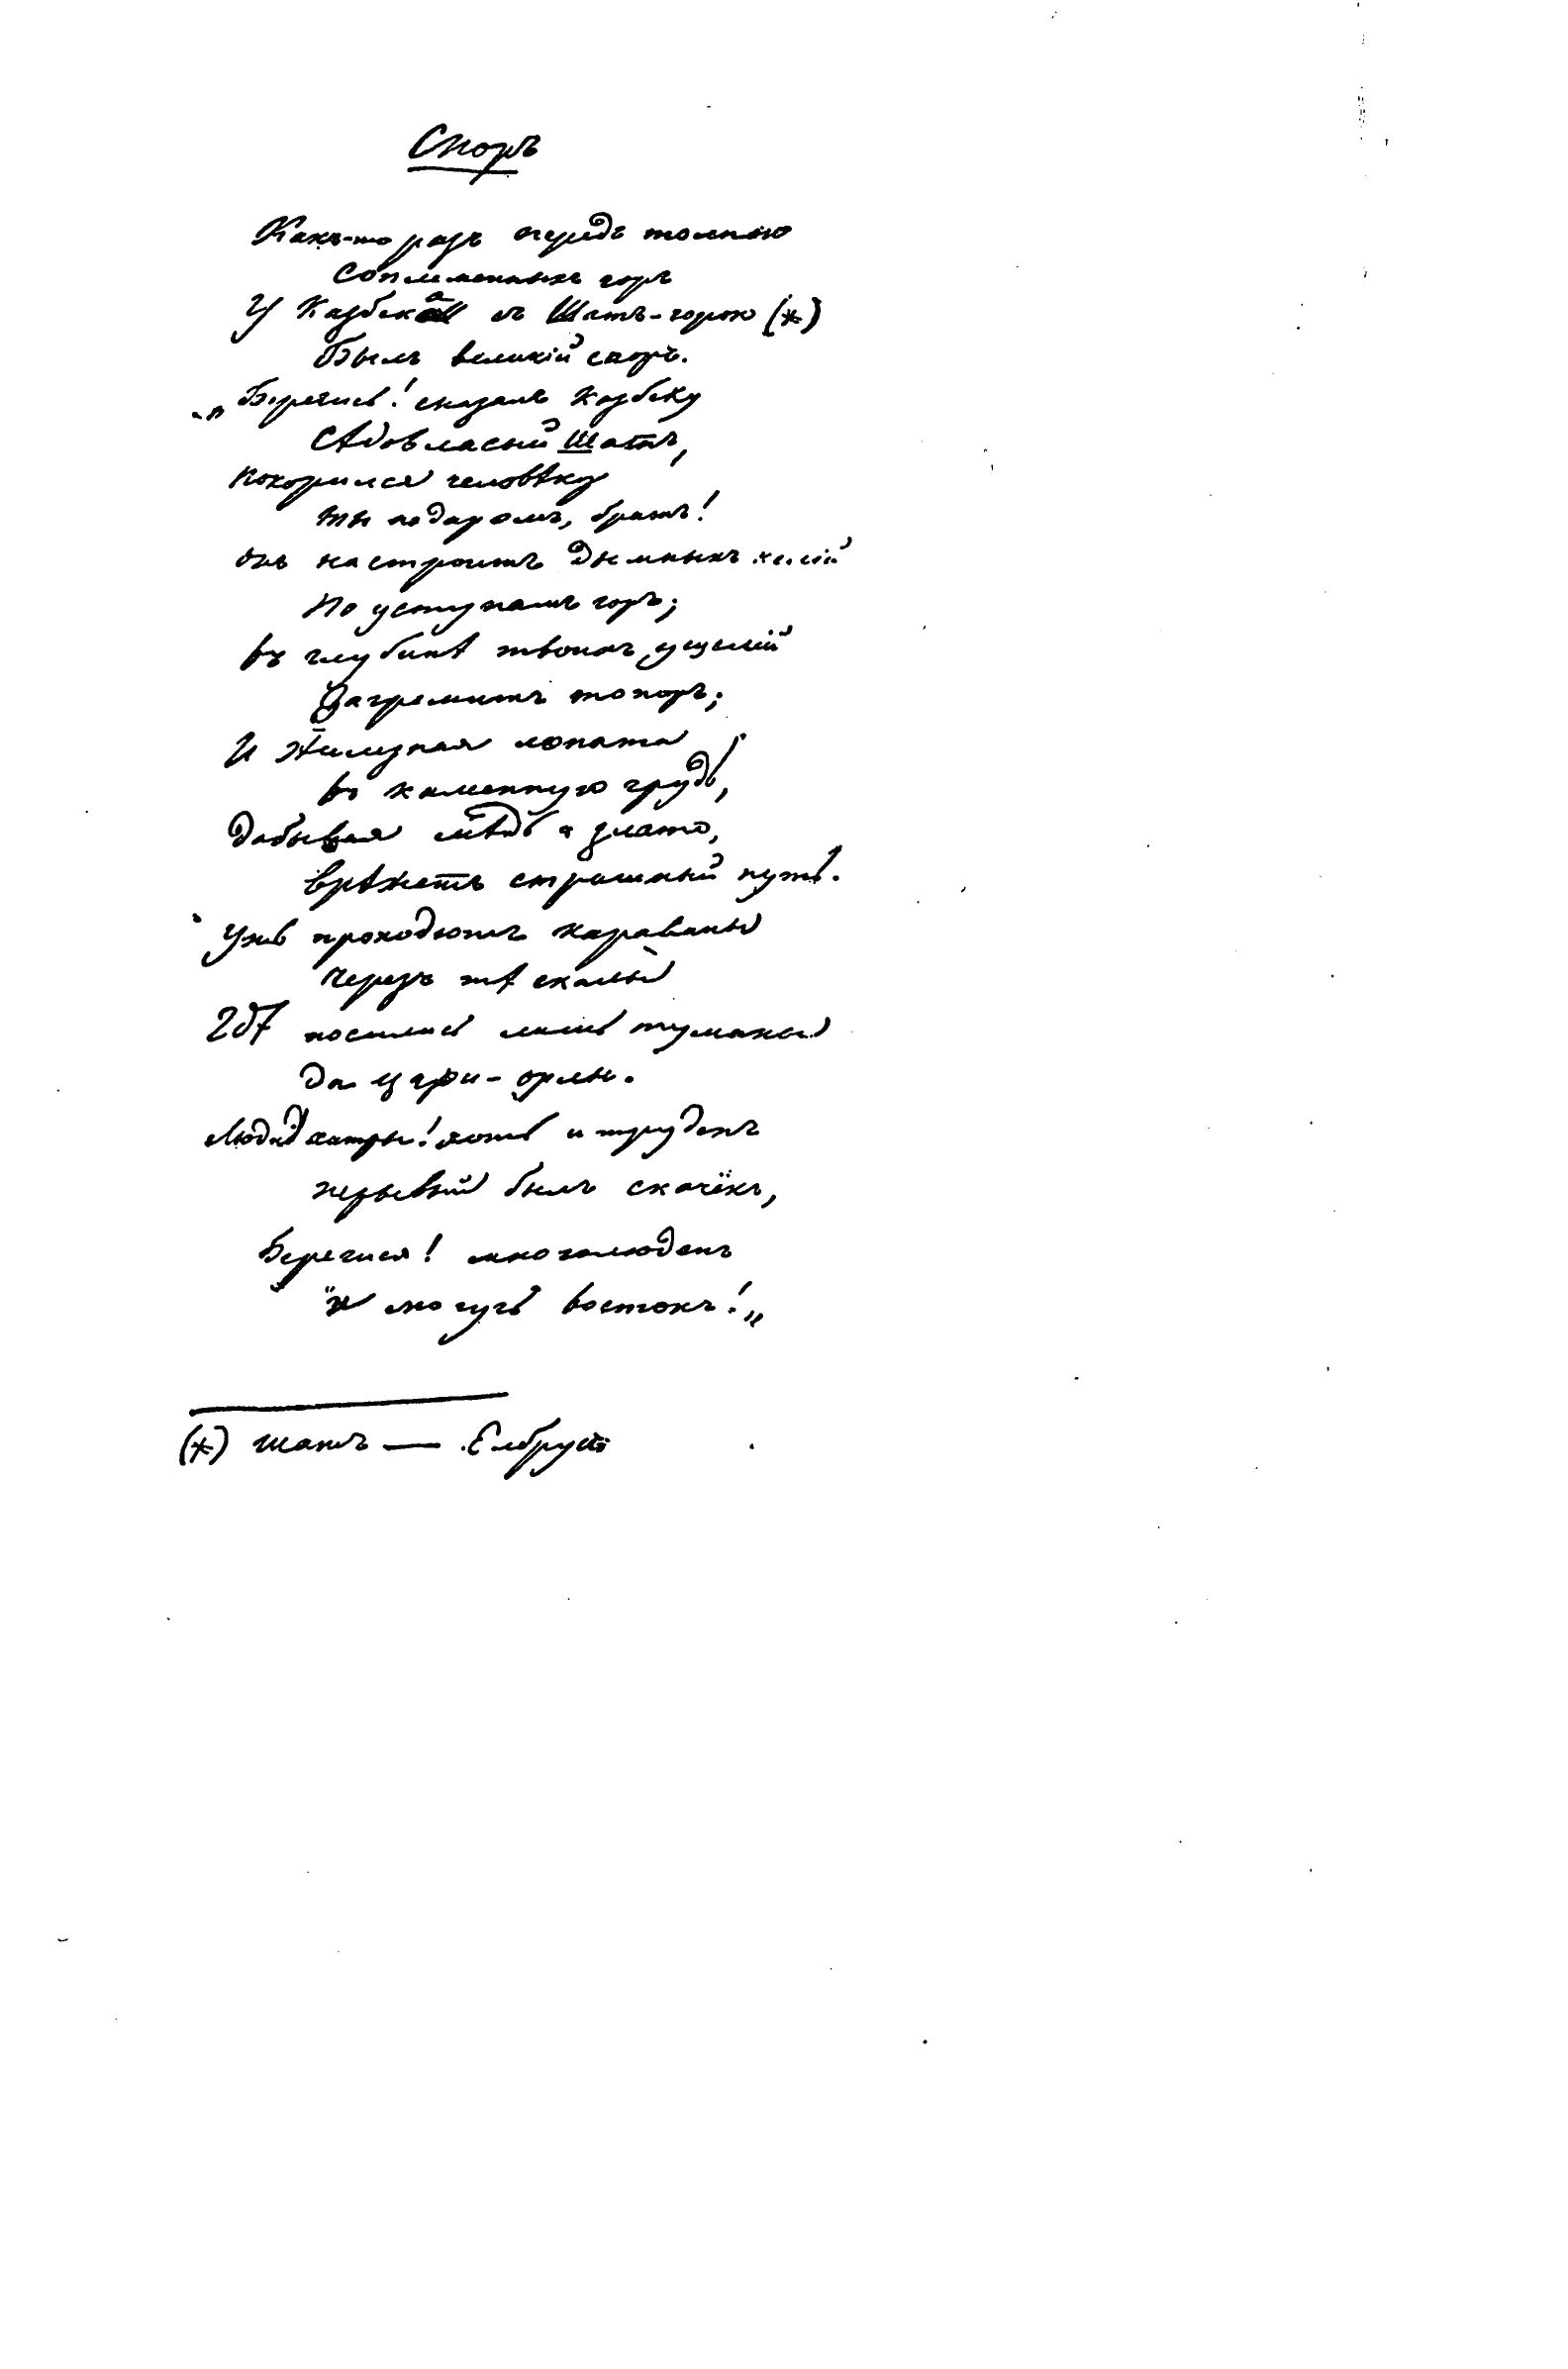 Споръ
Какъ-то разъ передъ толпою
Соплеменныхъ горъ
У Казбека съ Шатъ-горою (*)
Былъ великiй споръ.
„Берегись! сказалъ Казбеку
Сѣдовласый Шатъ,
Покорился человѣку
Ты недаромъ, братъ!
Онъ настроитъ дымныхъ келiй
По уступамъ горъ;
Въ глубинѣ твоихъ ущелiй
Загремитъ топоръ;
И желѣзная лопата
Въ каменную грудь,
Добывая мѣдь и злато,
Врѣжетъ страшный путь.
Ужъ проходятъ караваны
Черезъ тѣ скалы
Гдѣ носились лишь туманы
Да цари-орлы.
Люди хитры! хоть и труденъ
Первый былъ скачёкъ,
Берегися! многолюденъ
И могучъ востокъ!„
(*) Шатъ — Елбрусъ